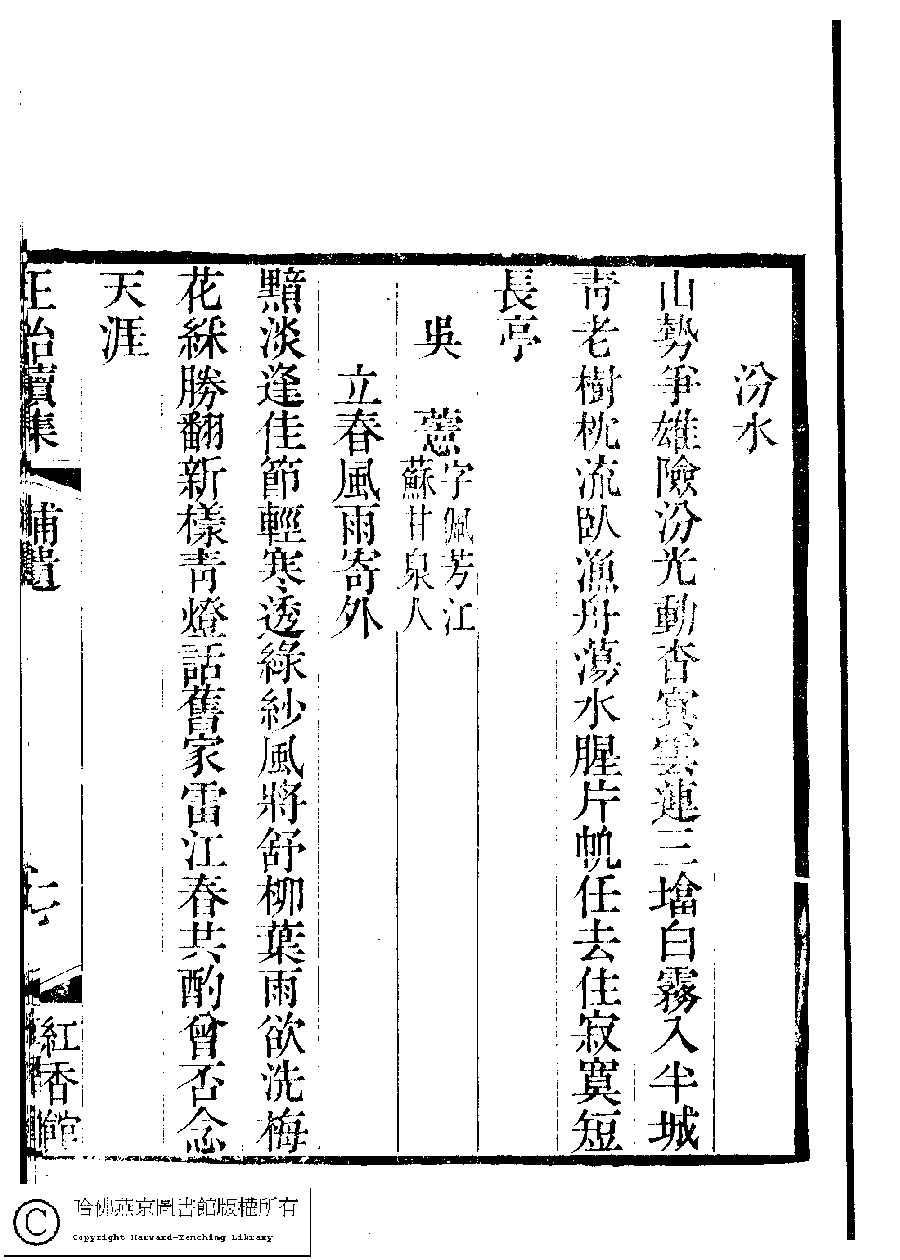 汾水
山勢爭雄險汾光動杳冥雲連三壋白霧入半城
青老樹枕流臥漁舟蕩水腥片帆任去住寂寞短
長亭
吳蕙
字佩芳江
蘇甘泉人
立春風雨寄外
黯淡逢佳節輕寒透綠紗風將舒柳葉雨欲洗梅
花綵勝翻新樣青燈話舊家雷江春共酌曾否念
天涯
正始續集
補遺
七
紅香館
哈佛燕京圖書館版權所有
Copyright Harvard-Yenching Library